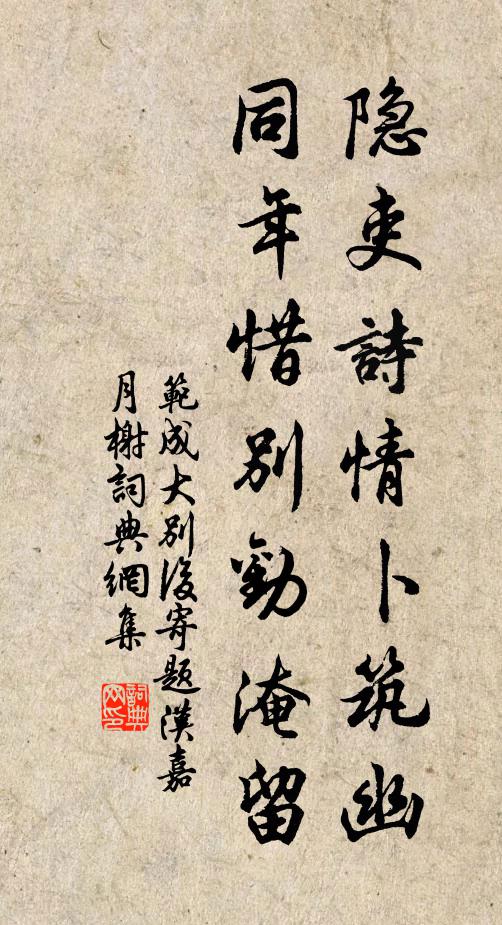 隐吏詩情卜筑幽
同年惜别勸淹留
範成大别後寄题漢嘉
月榭詞典網集
詞典网印